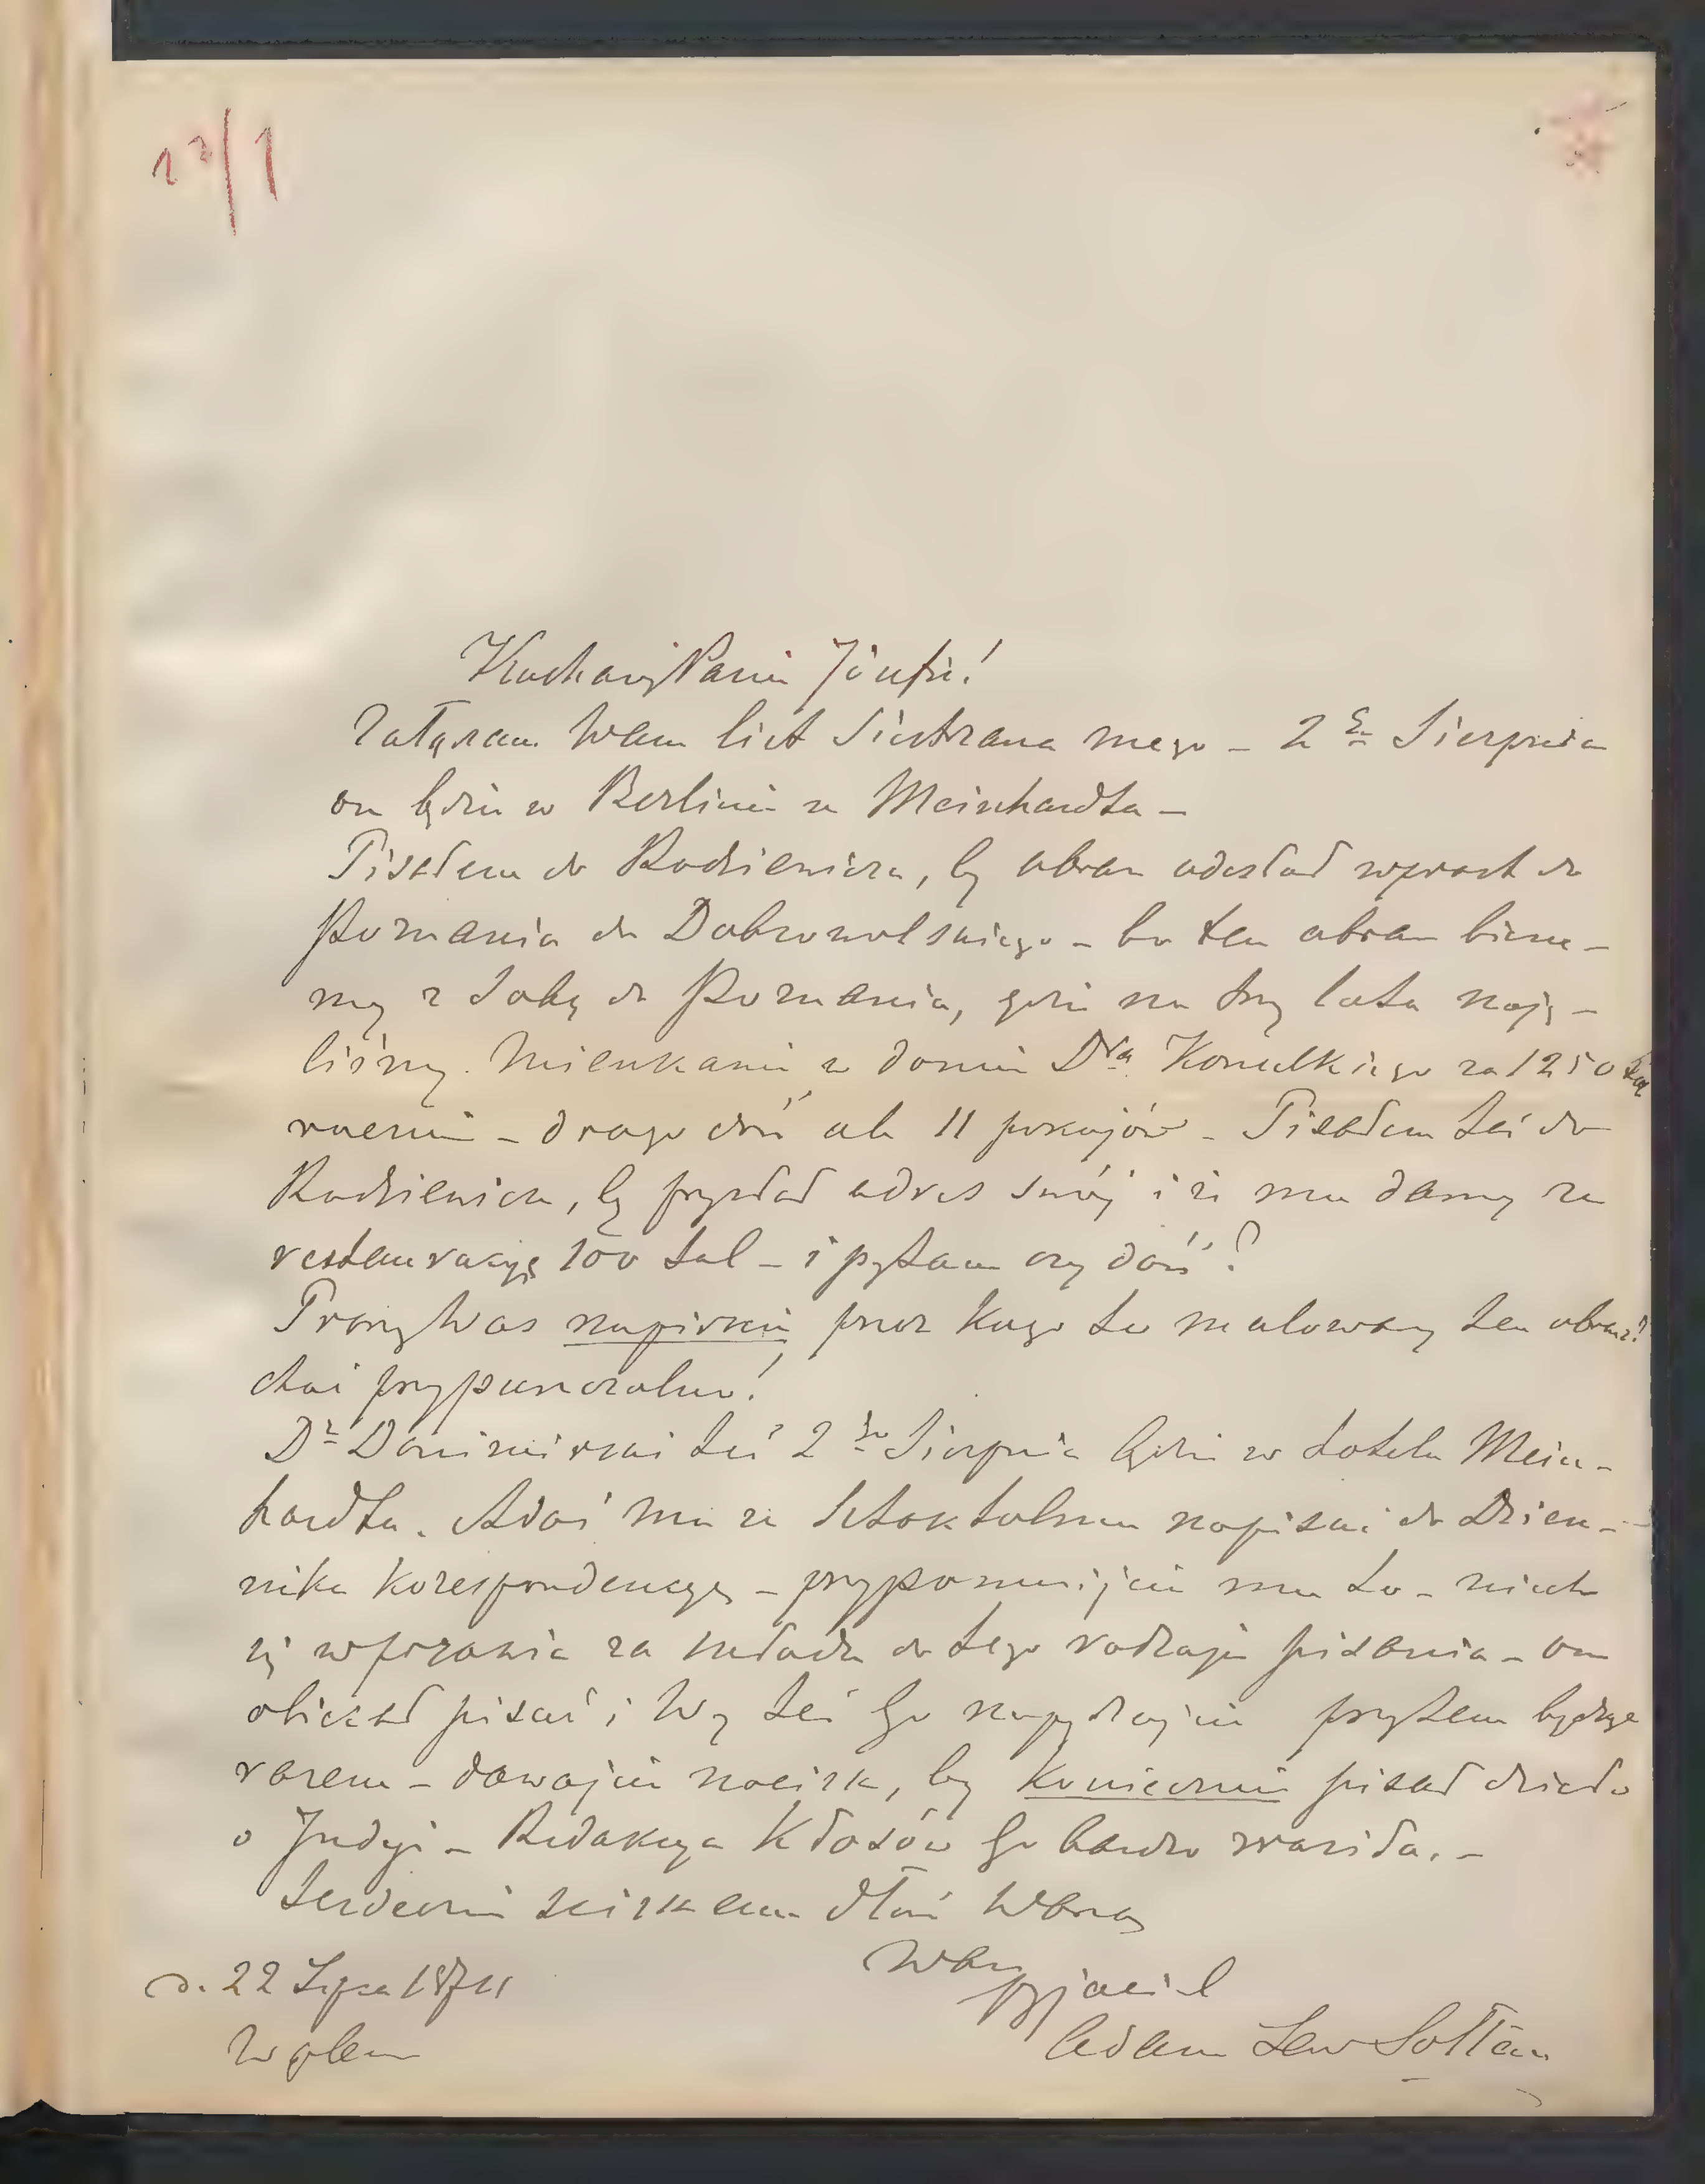 Kochany Panie Józefie!
Załączam Wam list Siostrzana mego – 2go Sierpnia
on będzie w Berlinie u Meinhardta –
Pisałem do Rodziewicza, by obraz odesłał wprost do
Poznania do Dobrowolskiego – bo ten obraz bierze–
my z sobą do Poznania, gdzie na trzy lata naję–
liśmy mieszkanie w domu Dra za 1250 tal
rocznie – drogo dość ale 11 pokojów – Pisałem też do
Rodziewicza, by przysłał adres swój i że mu damy za
restauracyę 100 tal – i pytam czy dość?
Proszę Was napiszcie przez kogo to malowany ten obraz?
choć przypuszczalno!
Dr Donimirski też 2go Sierpnia będzie w hotelu Mein–
hardta. Adaś ma ze Sztokholmu napisać do Dzien–
nika korespondencyę – przypomnijcie mu to – niech
się wprawia za młodu do tego rodzaju pisania – on
obiecał pisać i Wy też go napędzajcie przytem będąc
razem – dawajcie nacisk, by koniecznie pisał dzieło
o Indyi – Redakcya Kłosów go bardzo
Serdecznie ściskam dłoń Waszą
Wasz
przyjaciel
Adam Lew Sołtan
d. 22 Lipca 1874